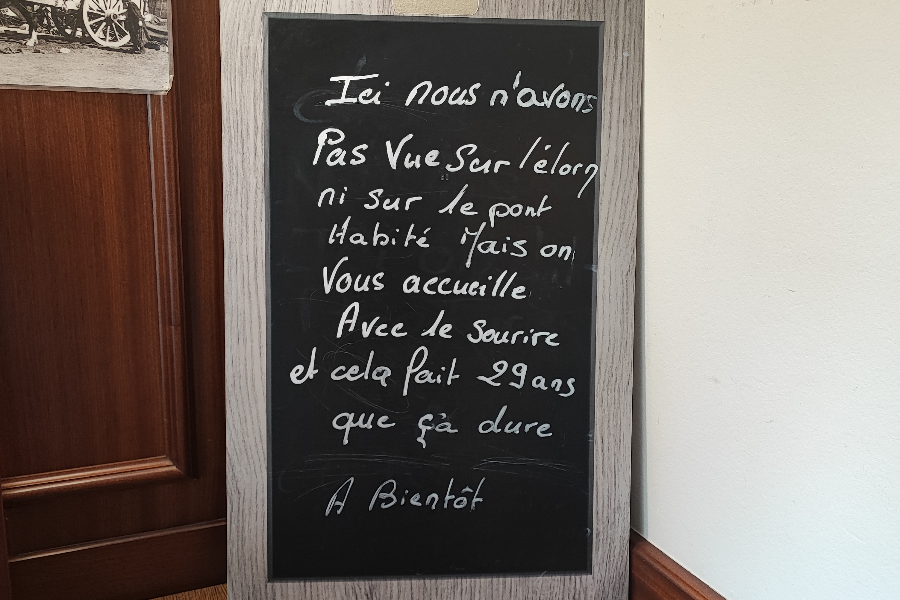 Ici nous n'avons
Pas Vue Sur l'élorn
ni sur le pont
Habité Mais on
Vous accueille
Avec le sourire
et cela fait 29 ans
que çà dure
A Bientôt